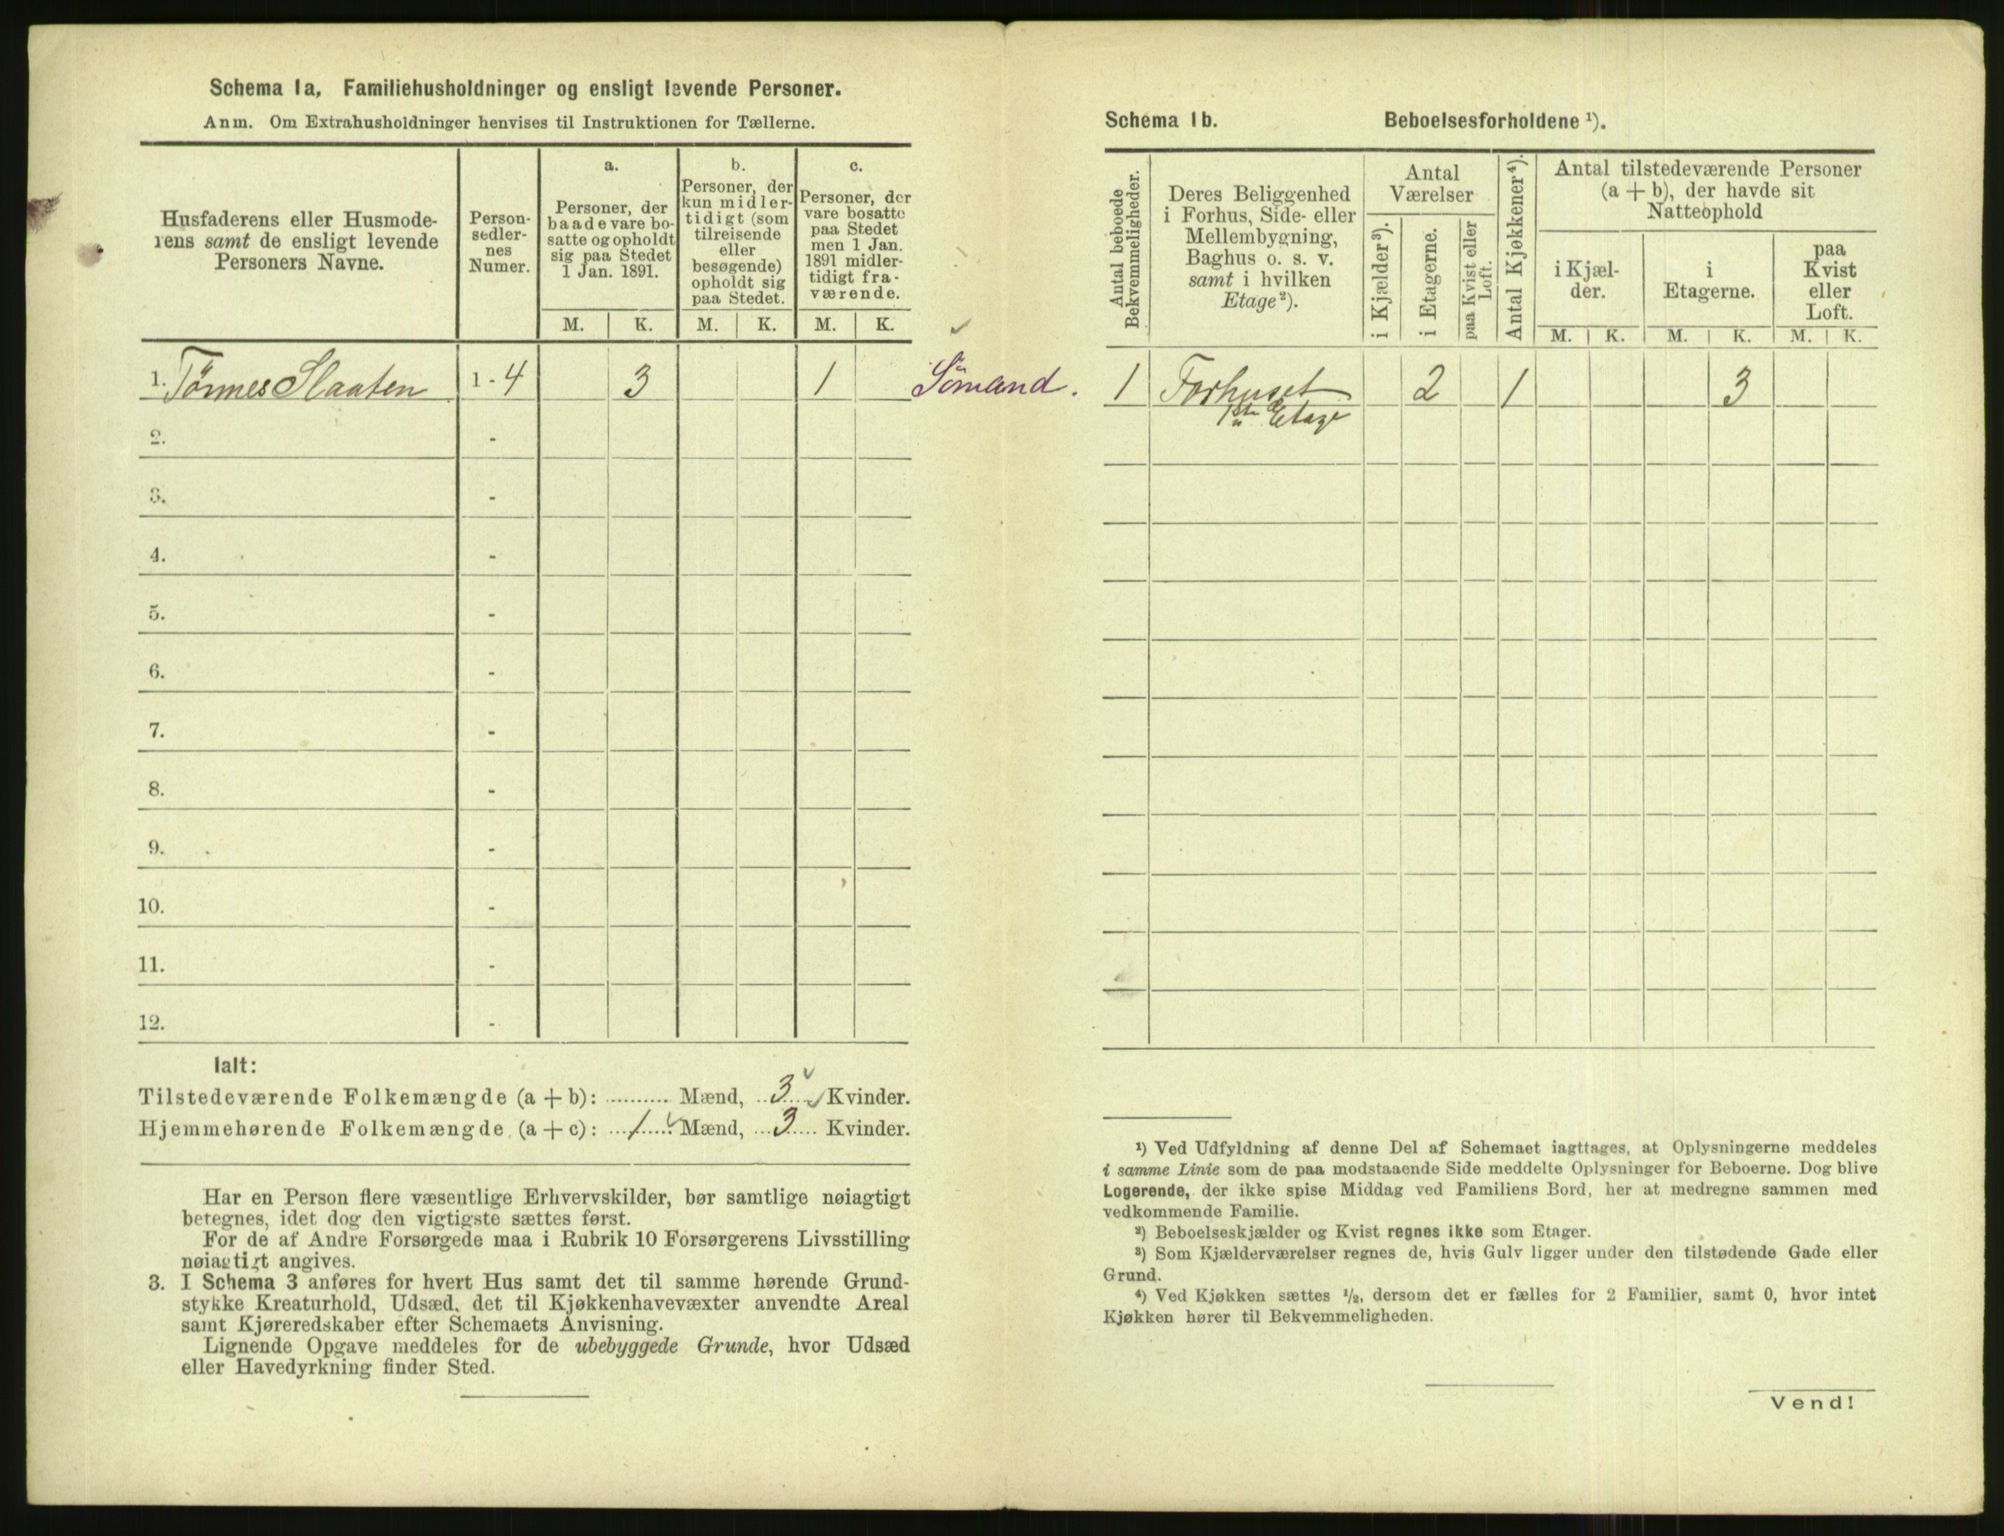 Schema 1a, Familiehusholdninger og ensligt levende Personer.
Anm. Om Extrahusholdninger henvises til Instruktionen for Tællerne.
Husfaderens eller Husmode-
rens samt de ensligt levende
Personers Navne.
Person-
sedler-
nes
Numer.
a.
Personer, der
baade vare bo-
satte og opholdt
sig paa Stedet
1 Jan. 1891.
b.
Personer, der
kun midler-
tidigt (som
tilreisende
eller
besøgende)
opholdt sig
paa Stedet.
c.
Personer, der
vare bosatte
paa Stedet
men 1 Jan.
1891 midler-
tidigt fra-
værende.
M. K. M. K. M. K.
1. Tönnes Slaaten 1 - 4 3 1 Sömand.
2. -
3. -
4. -
5. -
6. -
7. -
8. -
9. -
10. -
11. -
12. -
Ialt:
Tilstedeværende Folkemængde (a + b): .......... Mænd, 3 Kvinder.
Hjemmehørende Folkemængde (a + c): 1 Mænd, 3 Kvinder.
Har en Person flere væsentlige Erhvervskilder, bør samtlige nøiagtigt
betegnes, idet dog den vigtigste sættes først.
For de af Andre Forsørgede maa i Rubrik 10 Forsørgerens Livsstilling
nøiagtigt angives.
3. I Schema 3 anføres for hvert Hus samt det til samme hørende Grund-
stykke Kreaturhold, Udsæd, det til Kjøkkenhavevæxter anvendte Areal
samt Kjøreredskaber efter Schemaets Anvisning.
Lignende Opgave meddeles for de ubebyggede Grunde, hvor Udsæd
eller Havedyrkning finder Sted.
Schema 1b. Beboelsesforholdene ¹).
Antal beboede
Bekvemmeligheder.
Deres Beliggenhed
i Forhus, Side- eller
Mellembygning,
Baghus o. s. v.
samt i hvilken
Etage ²).
Antal
Værelser
i Kjælder ³).
i Etagerne.
paa Kvist eller
Loft.
Antal Kjøkkener ⁴).
Antal tilstedeværende Personer
(a + b), der havde sit
Natteophold
i Kjæl-
der.
i
Etagerne.
paa
Kvist
eller
Loft.
M. K. M. K. M. K.
1 Forhuset 2 1 3
1ste Etage
¹) Ved Udfyldning af denne Del af Schemaet iagttages, at Oplysningerne meddeles
i samme Linie som de paa modstaaende Side meddelte Oplysninger for Beboerne. Dog blive
Logerende, der ikke spise Middag ved Familiens Bord, her at medregne sammen med
vedkommende Familie.
²) Beboelseskjælder og Kvist regnes ikke som Etager.
³) Som Kjælderværelser regnes de, hvis Gulv ligger under den tilstødende Gade eller
Grund.
⁴) Ved Kjøkken sættes ½, dersom det er fælles for 2 Familier, samt 0, hvor intet
Kjøkken hører til Bekvemmeligheden.
Vend!